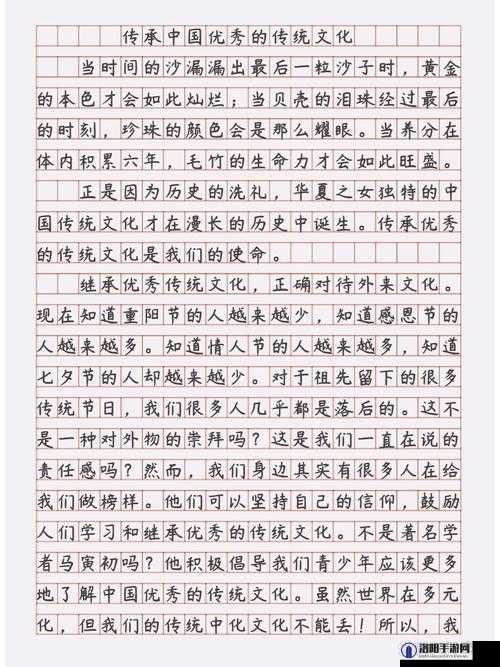 传承中国优秀的传统文化
当时间的沙漏漏出最后一粒沙子时，黄金
的本色才会如此灿烂；当贝壳的泪珠经过最后
的时刻，珍珠的颜色会是那么耀眼。当养分在
体内积累六年，毛竹的生命力才会如此旺盛。
正是因为历史的洗礼，华夏之女独特的中
国传统文化才在漫长的历史中诞生。传承优秀
的传统文化是我们的使命。
继承优秀传统文化，正确对待外来文化。
现在知道重阳节的人越来越少，知道感恩节的
人越来越多。知道情人节的人越来越多，知道
七夕节的人却越来越少。对于祖先留下的很多
传统节日，我们很多人几乎都是落后的。这不
是一种对外物的崇拜吗？这是我们一直在说的
责任感吗？然而，我们身边其实有很多人在给
我们做榜样。他们可以坚持自己的信仰，鼓励
人们学习和继承优秀的传统文化。不是著名学
者马寅初吗？他积极倡导我们青少年应该更多
地了解中国优秀的传统文化。虽然世界在多元
化，但我们的传统中化文化不能丢！所以，我
洛阳手游网